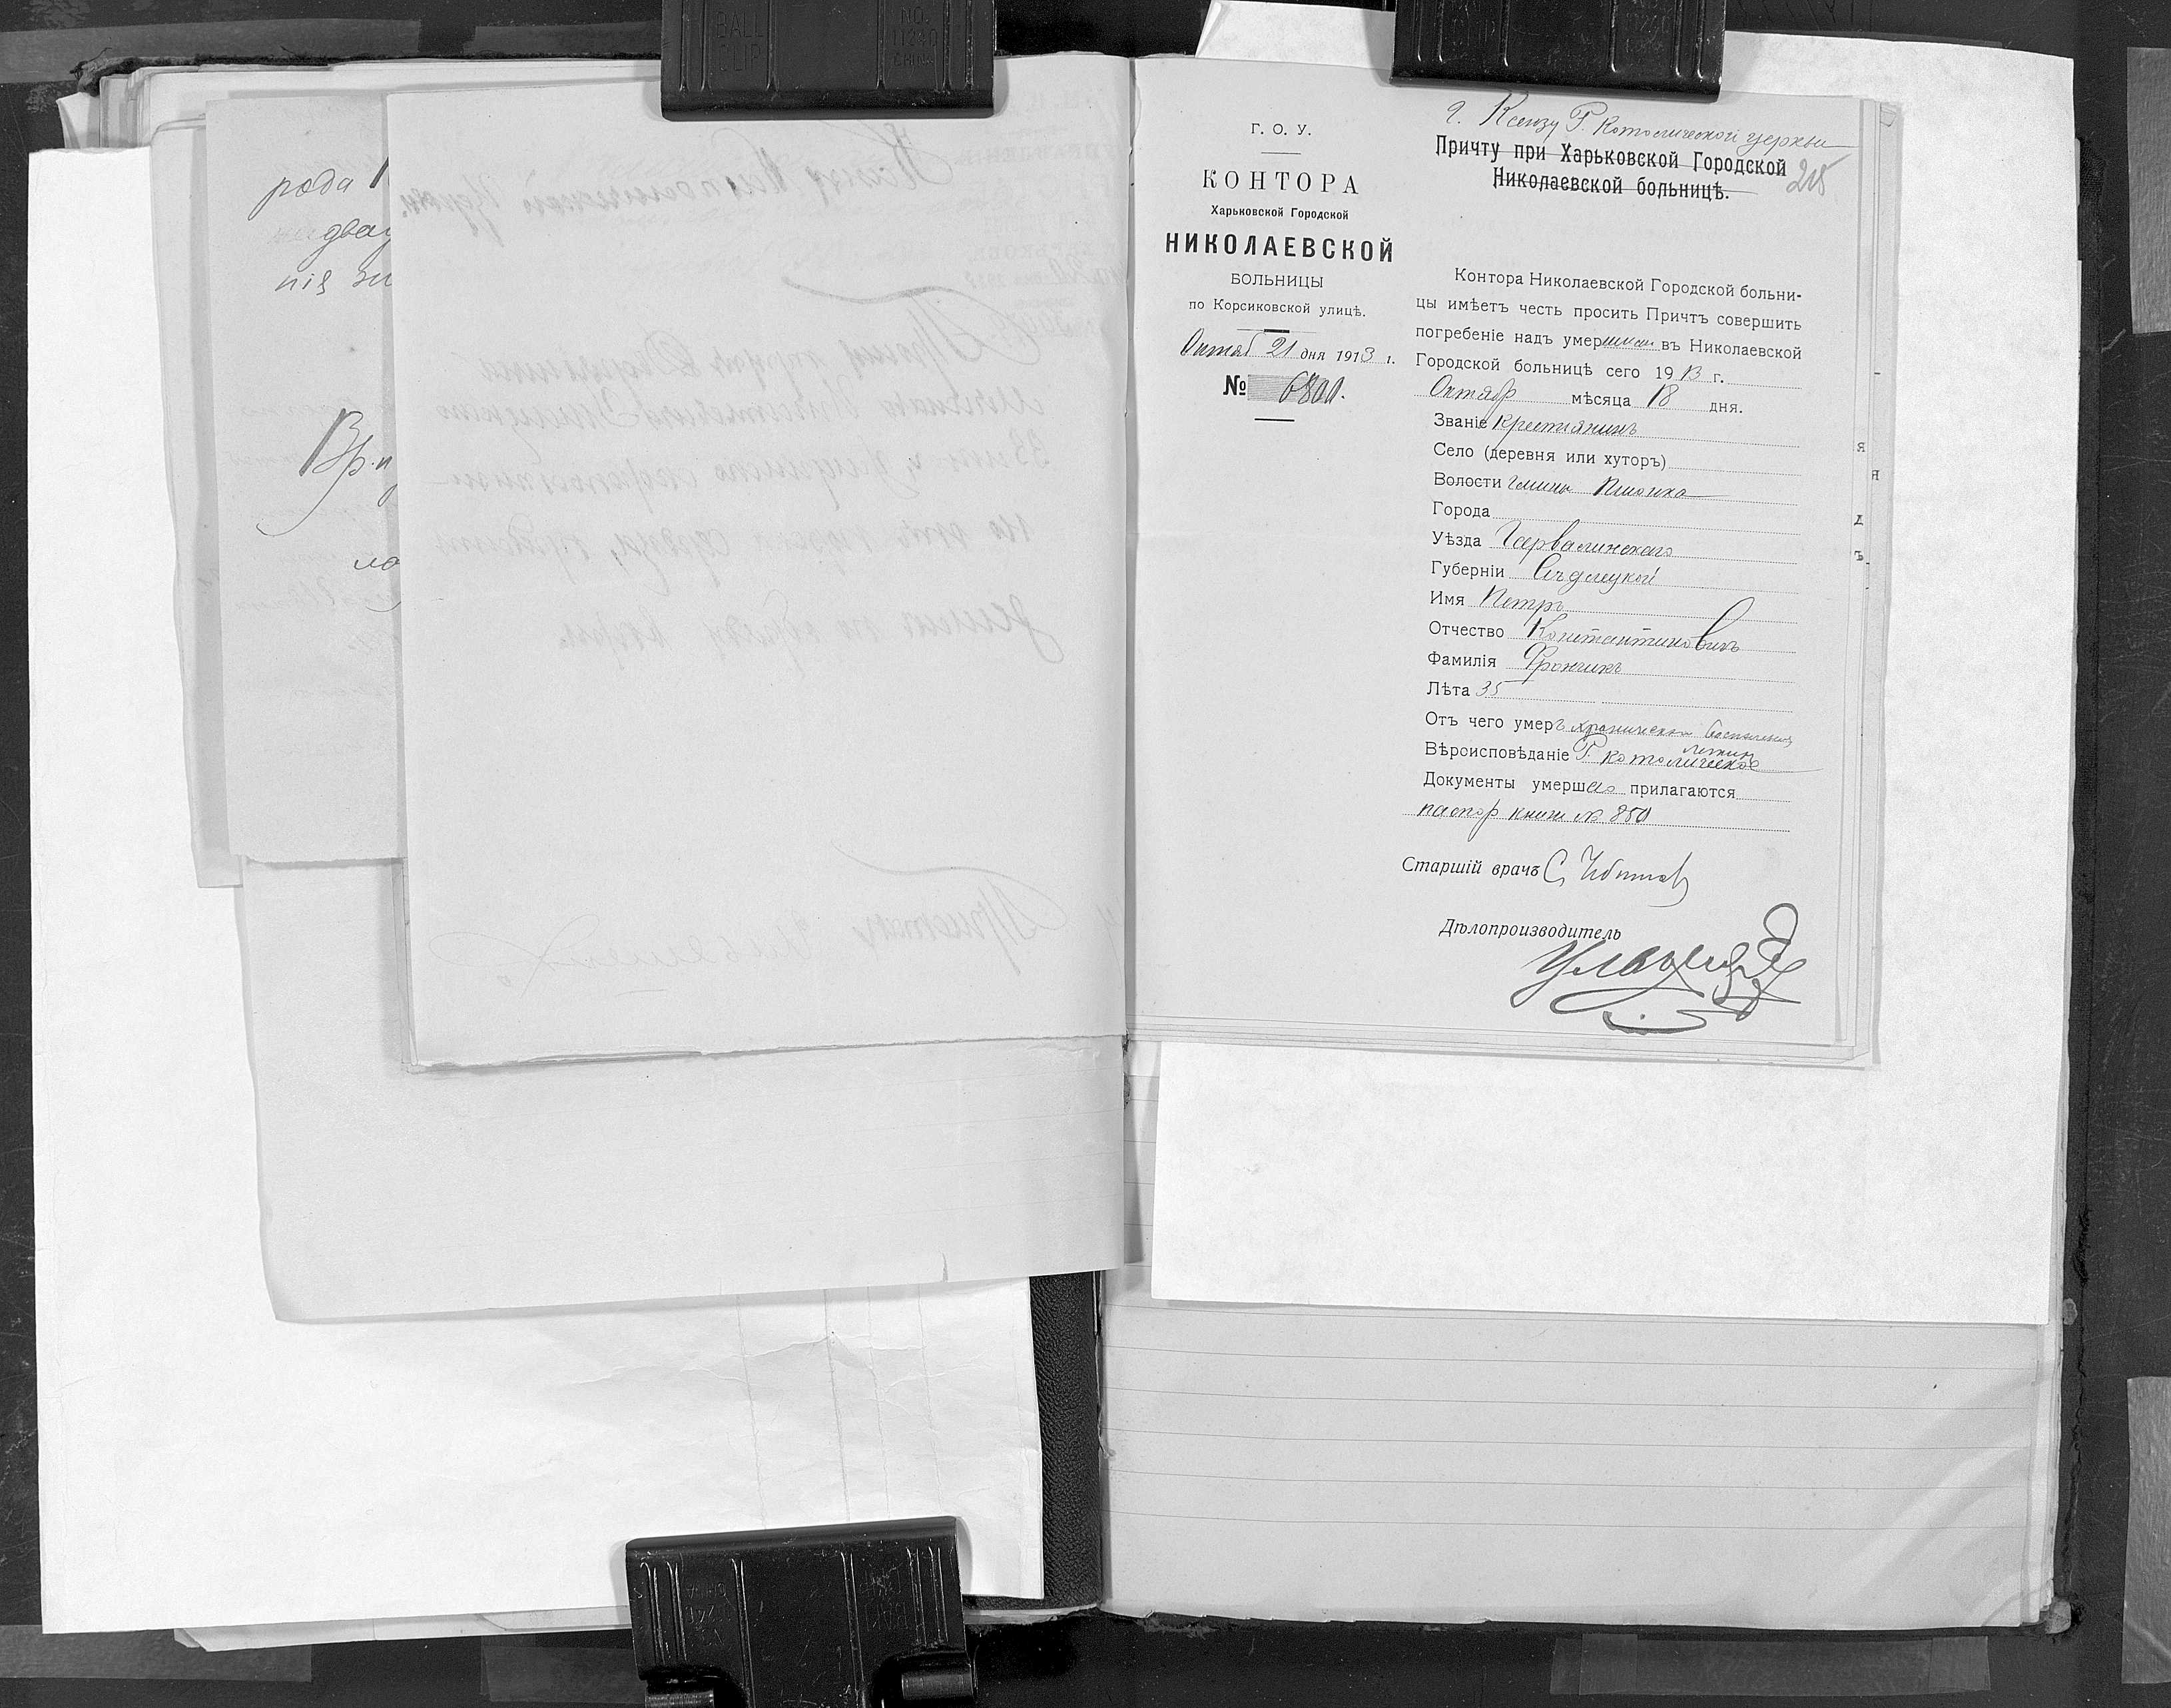 рода
двад
нія
Вр. п
Г. О. У.
КОНТОРА
Харьковской Городской
НИКОЛАЕВСКОЙ
БОЛЬНИЦЫ
по Корсиковской улицѣ.
Октяб 21 дня 1913 г.
№ 6800.
г. Ксензу Р. Католической церкви
Причту при Харьковской Городской
Николаевской больницѣ.
215
Контора Николаевской Городской больни-
цы имѣетъ честь просить Причтъ совершить
погребеніе надъ умершимъ въ Николаевской
Городской больницѣ сего 1913 г.
Октябр мѣсяца 18 дня.
Званіе Крестянинъ
Село (деревня или хуторъ)
Волости гмины
Города
Уѣзда Гарволинскаго
Губерніи Сѣдлецкой
Имя Петръ
Отчество Константиновичъ
Фамилія Фрончикъ
Лѣта 35
Отъ чего умеръ хроническое воспаленіе
легких
Вѣроисповѣданіе Р. католическое
Документы умершаго прилагаются
паспор книж № 850
Старшій врачъ С.
Дѣлопроизводитель